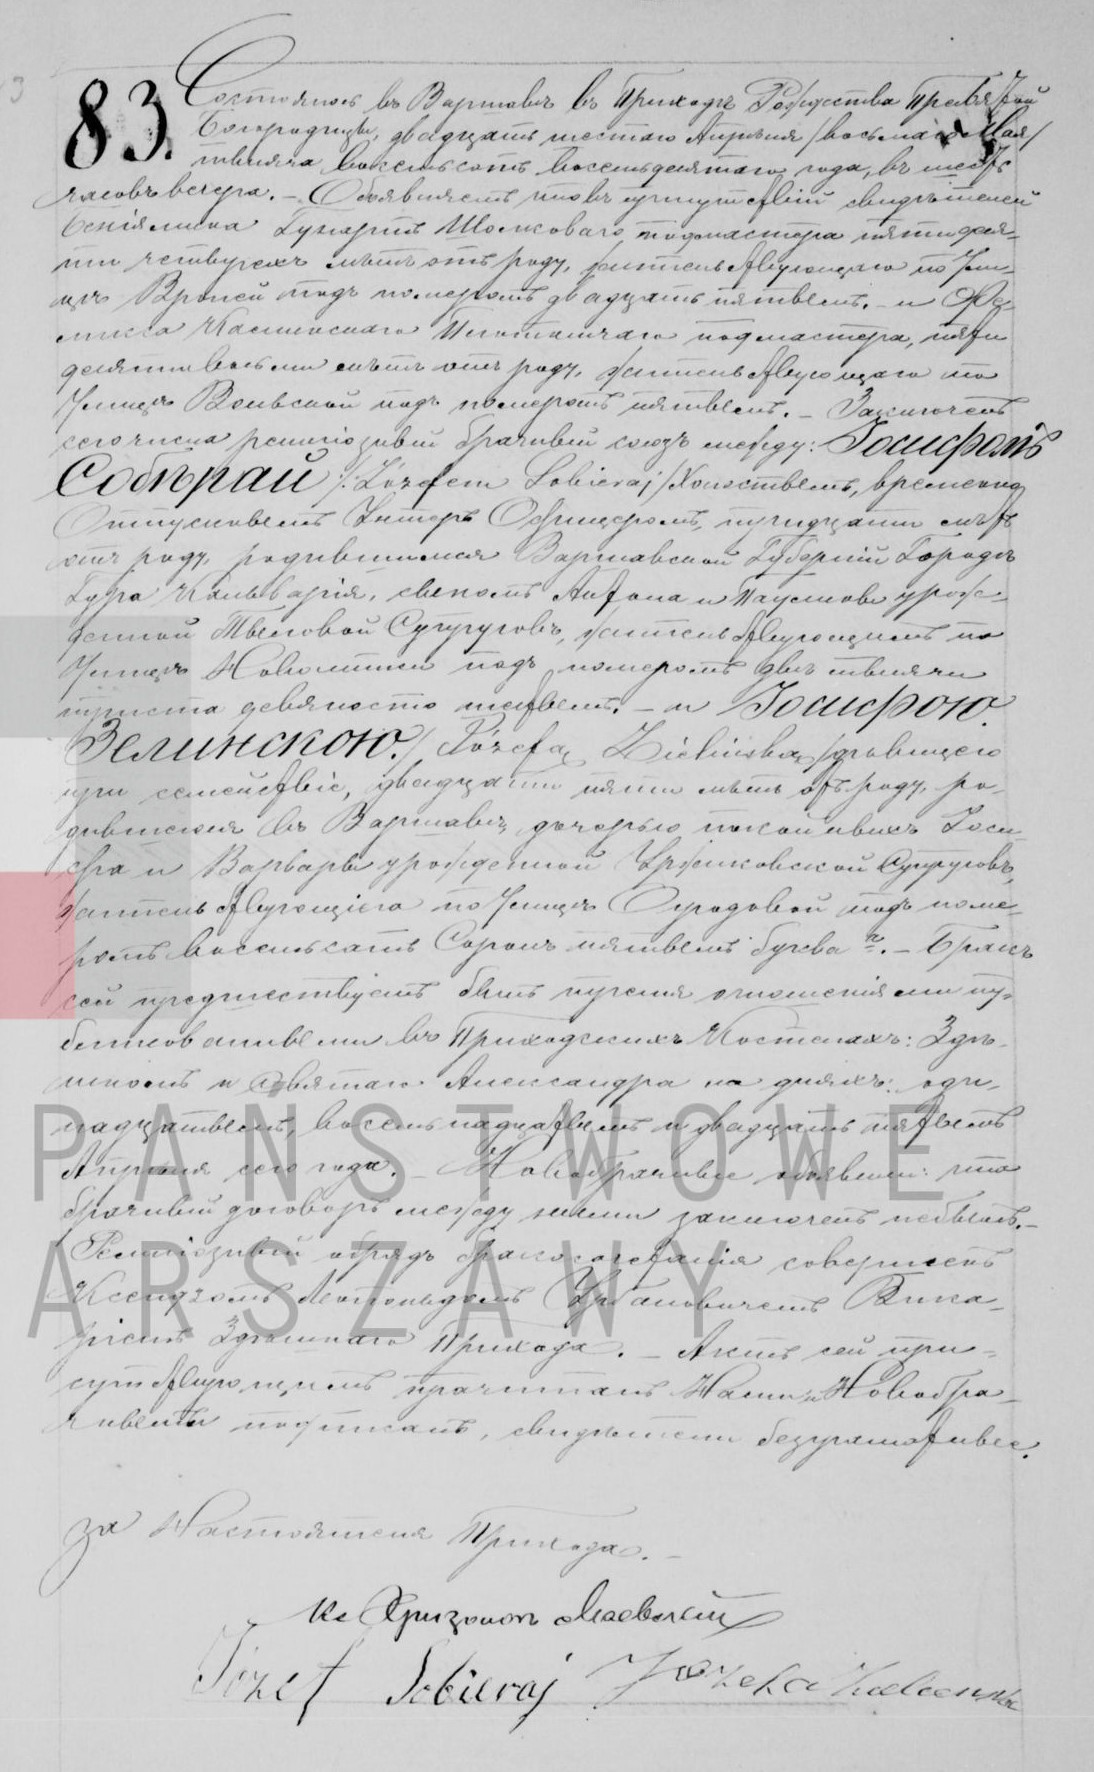 83.
Состоялось въ Варшавѣ въ Приходѣ Рождества Пресвятой
Богородицы, двадцать шестаго Апрѣля /восьмаго Мая/
тысяча восемьсотъ восемьдесятаго года, въ шесть
часовъ вечера. – Объявляемъ что въ присутствіи свидѣтелей
подмастера пятидеся-
ти четырехъ лѣтъ отъ роду, жительствующаго по Ули-
цѣ Вроней подъ номеромъ двадцать пятымъ. – и
подмастера, пяти
десяти восьми лѣтъ отъ роду, жительствующаго по
Улицѣ Вольской подъ номеромъ пятымъ. – Заключенъ
сего числа религіозный брачный союзъ между: Іосифомъ
Собѣрай /: Józefem Sobieraj / Холостымъ, временно
Отпускнымъ Унтеръ Офицеромъ, тридцати лѣтъ
отъ роду, родившимся Варшавской Губерніи Городѣ
Гура Кальварія, сыномъ Антона и Паулины урож-
денной Супруговъ, жительствующимъ по
Улицѣ Новолипки подъ номеромъ двѣ тысячи
триста девяносто шестымъ. – и Іосифою
Зелинскою. / Józefą Zielińską /дѣвицею
при семействѣ, двадцати пяти лѣтъ отъ роду, ро-
дившеюся въ Варшавѣ, дочерью покойныхъ Іоси-
фа и Варвары урожденной Супруговъ,
жительствующею по Улицѣ Огродовой подъ номе-
ромъ восемьсотъ Сорокъ пятымъ буква – Бракъ
сей предшествуемъ былъ тремя оглашеніями пу-
бликованными въ Приходскихъ Костелахъ: Здѣ-
шномъ и Святаго Александра на дняхъ: оди-
надцатымъ, восемьнадцатымъ и двадцать пятымъ
Апрѣля сего года. – Новобрачные объявили: что
брачный договоръ между ними заключенъ небылъ. –
Религіозный обрядъ бракосочетанія совершенъ
Ксендзомъ Леопольдомъ Урбановичемъ Вика-
ріемъ Здѣшняго Прихода. – Актъ сей при-
сутствующимъ прочитанъ Нами и Новобра-
чными подписанъ, свидѣтели безграмотные.
за Настоятеля Прихода. –
Кс
Józef Sobieraj Józefa
PAŃSTWOWE
ARSZAWY